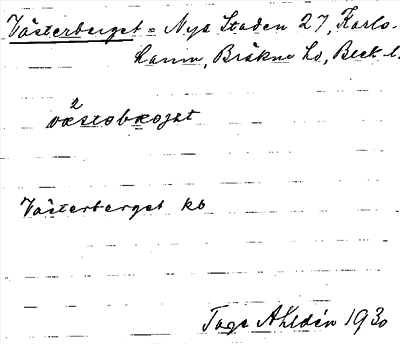 Västerberget = Nya Staden 27, Karls-
hamn, Bräkne hd, Bleck l.
2
væstəbræjət
Västerberget kb
Tage Ahldén 1930